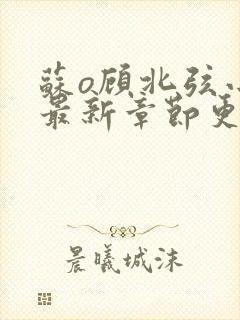 蘇o顾北弦小
最新章節更
晨曦城沫